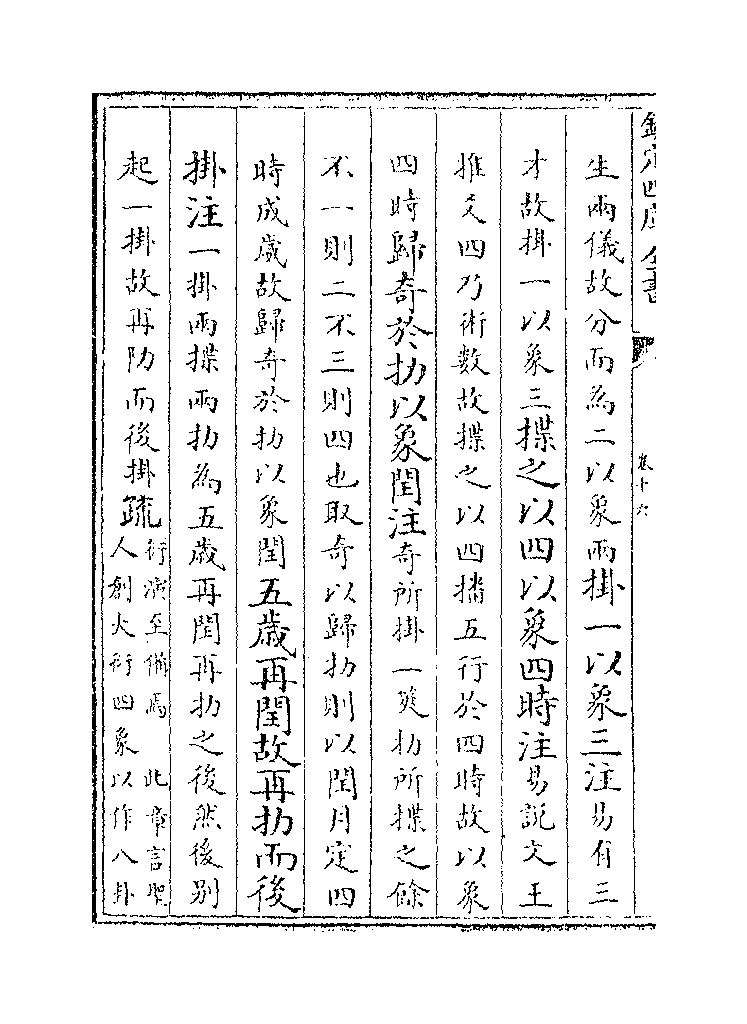 欽定四庫全書
卷十六
生兩儀故分而為二以象兩掛一以象三注易有三
才故掛一以象三揲之以四以象四時注易説文王
推爻四乃術數故揲之以四播五行於四時故以象
四時歸奇於扐以象閏注奇所掛一筴扐所揲之餘
不一則二不三則四也取奇以歸扐則以閏月定四
時成歲故歸奇於扐以象閏五歲再閏故再扐而後
掛注一掛兩揲兩扐為五歲再閏再扐之後然後别
起一掛故再扐而後掛疏衍演至備焉 此章言聖
人創大衍四象以作八卦